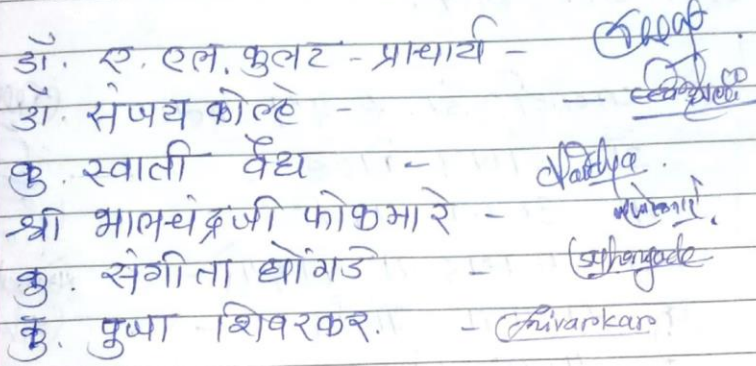 डॉ. ए. एल. कुलट - प्राचार्य -
डॉ. संजय कोल्हे -
कु. स्वाती वैद्य - Vaidya.
श्री भालचंद्रजी फोकमारे -
कु. संगीता घोंगडे - Sghongade
कु. पुजा शिवरकर. - Shivarkar